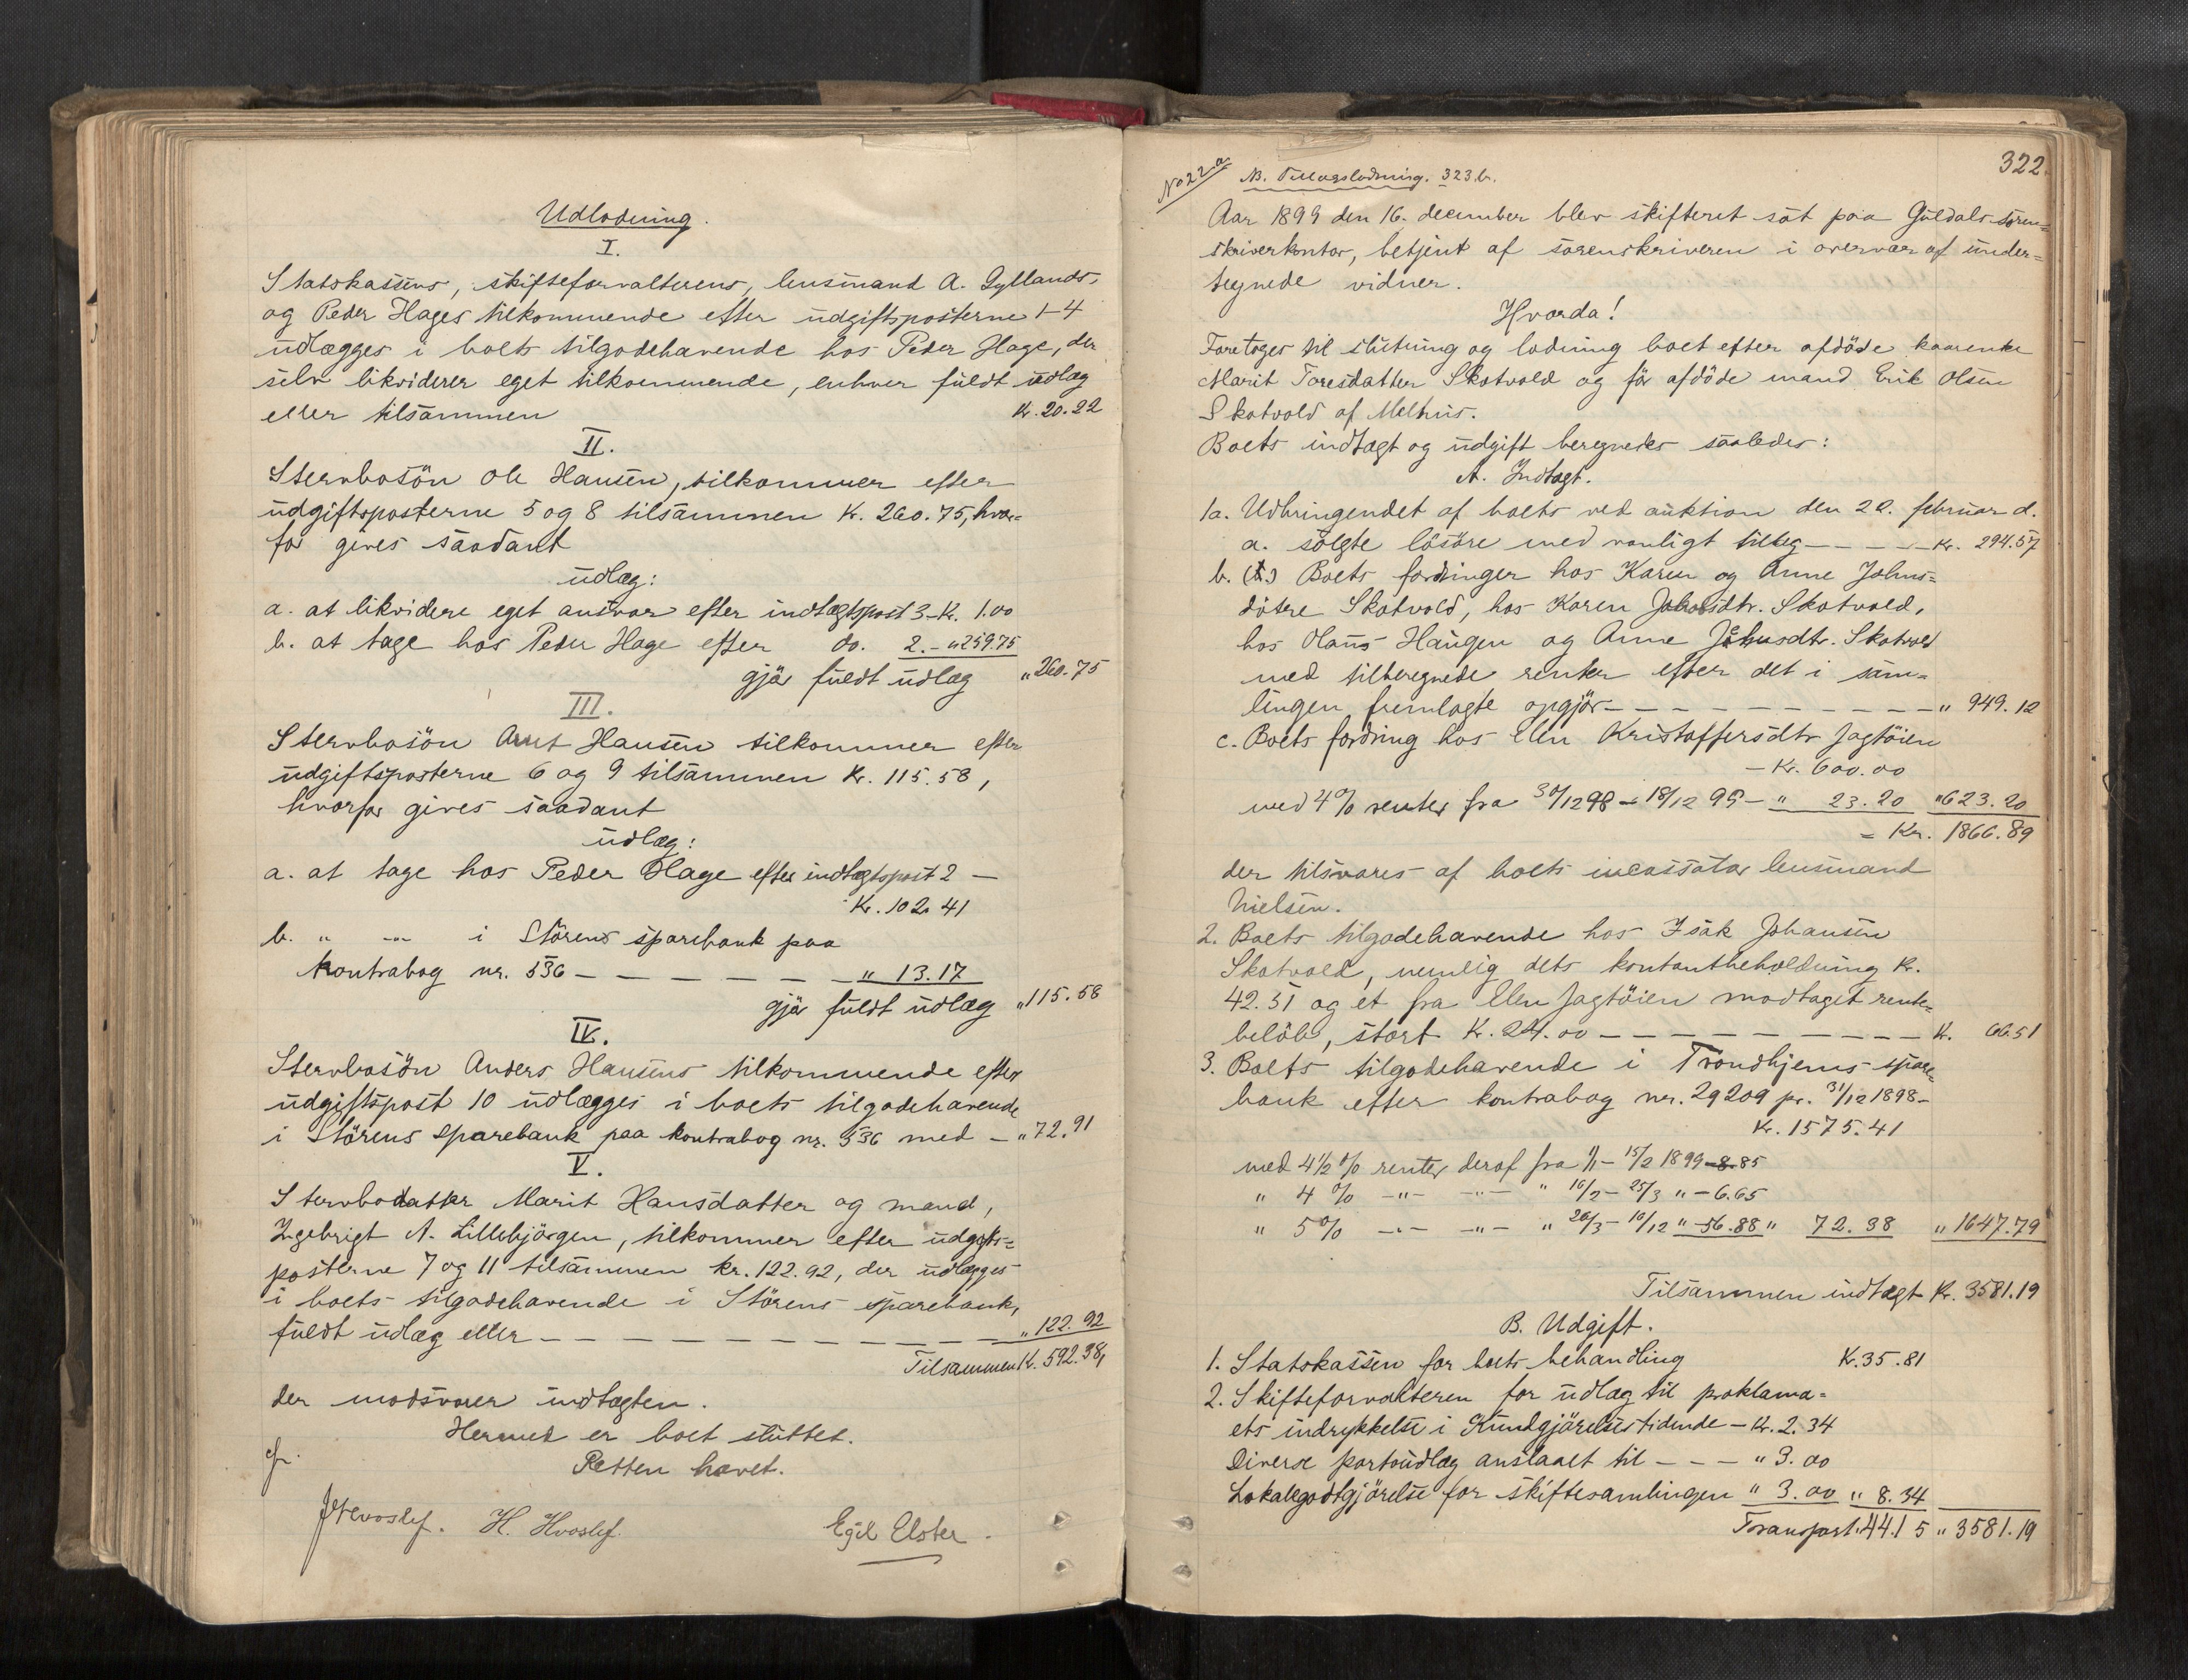 Udlodning.
I.
Statskassens, skifteforvalterens, lensmand A. Gyllands,
og Peder Hages tilkommende efter udgiftsposterne 1-4
udlægges i boets tilgodehavende hos Peder Hage, der
selv likviderer eget tilkommende, enhver fuldt udlæg
eller tilsammen Kr. 20.22
II.
Stervbosön Ole Hansen, tilkommer efter
udgiftsposterne 5 og 8 tilsammen Kr. 260.75, hvor=
for gives saadant
udlæg:
a. at likvidere eget ansvar efter indtægtspost 3 - Kr. 1.00
b. at tage hos Peder Hage efter do. 2. - " 259.75
gjör fuldt udlæg " 260.75
III.
Stervbosön Arnt Hansen tilkommer efter
udgiftsposterne 6 og 9 tilsammen Kr. 115.58,
hvorfor gives saadant
udlæg:
a. at tage hos Peder Hage efter indtægtspost 2 —
Kr. 102.41
b. " -"- i Störens sparebank paa
kontrabog nr. 536 — — — — — — " 13.17
gjör fuldt udlæg " 115.58
IV.
Stervbosön Anders Hansens tilkommende efter
udgiftspost 10 udlægges i boets tilgodehavende
i Störens sparebank paa kontrabog nr. 536 med — " 72.91
V.
Stervbodatter Marit Hansdatter og mand,
Ingebrigt A. Lillebjörgen, tilkommer efter udgifts=
posterne 7 og 11 tilsammen kr. 122.92, der udlægges
i boets tilgodehavende i Störens sparebank,
fuldt udlæg eller — — — — — — — — — " 122.92
Tilsammen Kr. 592.38,
der modsvarer indtægten.
Hermed er boet sluttet.
Retten hævet.
H. Hvoslef. Egil Elster.
322.
No 22 a
NB. Tillægslodning. 323 b.
Aar 1899 den 16. december blev skifteret sat paa Guldals soren=
skriverkontor, betjent af sorenskriveren i overvær af under=
tegnede vidner.
Hvorda!
Foretoges til slutning og lodning boet efter afdöde kaarenke
Marit Toresdatter Skotvold og för afdöde mand Erik Olsen
Skotvold af Melhus.
Boets indtægt og udgift beregnedes saaledes:
A. Indtægt.
1a. Udbringendet af boets ved auktion den 22. februar d.
a. solgte lösöre med vanligt tillæg — — — — Kr. 294.57
b. Boets fordringer hos Karen og Anne Johns=
dötre Skotvold, hos Karen Johnsdtr. Skotvold,
hos Hans Haugen og Anne Johnsdtr. Skotvold
med tilberegnede renter efter det i sam=
lingen fremlagte opgjör — — — — — — — — — " 949.12
c. Boets fordring hos Elen Kristoffersdtr Jagtöien
— Kr. 600.00
med 4% renter fra 30/12 98 – 18/12 99 — " 23.20 " 623.20
= Kr. 1866.89
der tilsvares af boets incassator lensmand
Nielsen.
2. Boets tilgodehavende hos Isak Johansen
Skotvold, nemlig dets kontantbeholdning Kr.
42.51 og et fra Elen Jagtöien modtaget rente=
belöb, stort Kr. 24.00 — — — — — — — — — Kr. 66.51
3. Boets tilgodehavende i Trondhjems spare=
bank efter kontrabog nr. 29209 pr. 31/12 1898 —
Kr. 1575.41
med 4½ % renter deraf fra 1/1 – 15/2 1899 – 8.85
" 4 % -"- -"- " 16/2 – 25/3 " – 6.65
" 5 % -"- -"- " 26/3 – 16/12 " – 56.88 " 72.38 " 1647.79
Tilsammen indtægt Kr. 3581.19
B. Udgift.
1. Statskassen for boets behandling Kr. 35.81
2. Skifteforvalteren for udlæg til proklama=
ets indrykkelse i Kundgjörelsestidende — Kr. 2.34
Diverse portoudlæg anslaaet til — — — " 3.00
Lokalegodtgjörelse for skiftesamlingen " 3.00 " 8.34
Transport 44.15 " 3581.19